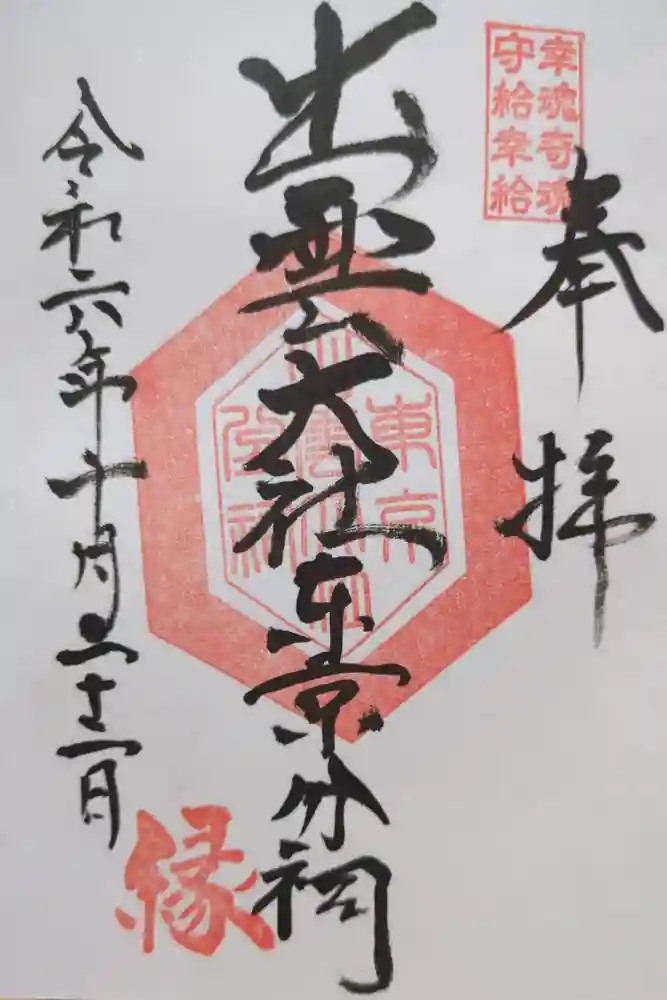 幸魂奇魂
守給幸給
奉拝
出雲大社東京分祠
東京
出雲大社
分祠
令和六年十月二十二日
縁